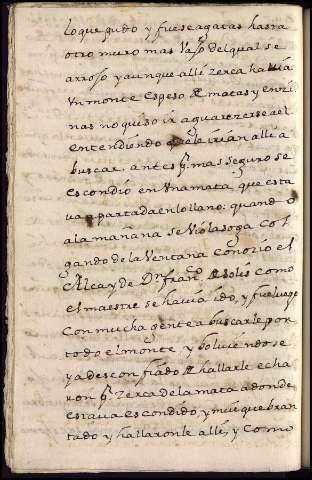 lo que pudo y fuese a gatas hasta
otro muro mas vajo del qual se
arrojo y aunque alli zerca havia
Un monte espeso de matas y enzi
nas no quiso ir a guarezerse a el
entendiendo que le irian alli a
buscar antes pr. mas seguro se
escondió en Una mata que esta
va apartada en lo llano: quando
a la mañana se Vio la soga col
gando de la Ventana conozio el
Alcayde Dn. franco. de Solis como
el maestre se havia ido, y fue luego
con mucha gente a buscarle por
todo el monte y bolviendose
ya desconfiado de hallarle echa
ron pr. zerca de la mata a donde
estava escondido, y mui quebran
tado y hallaronle alli, y como